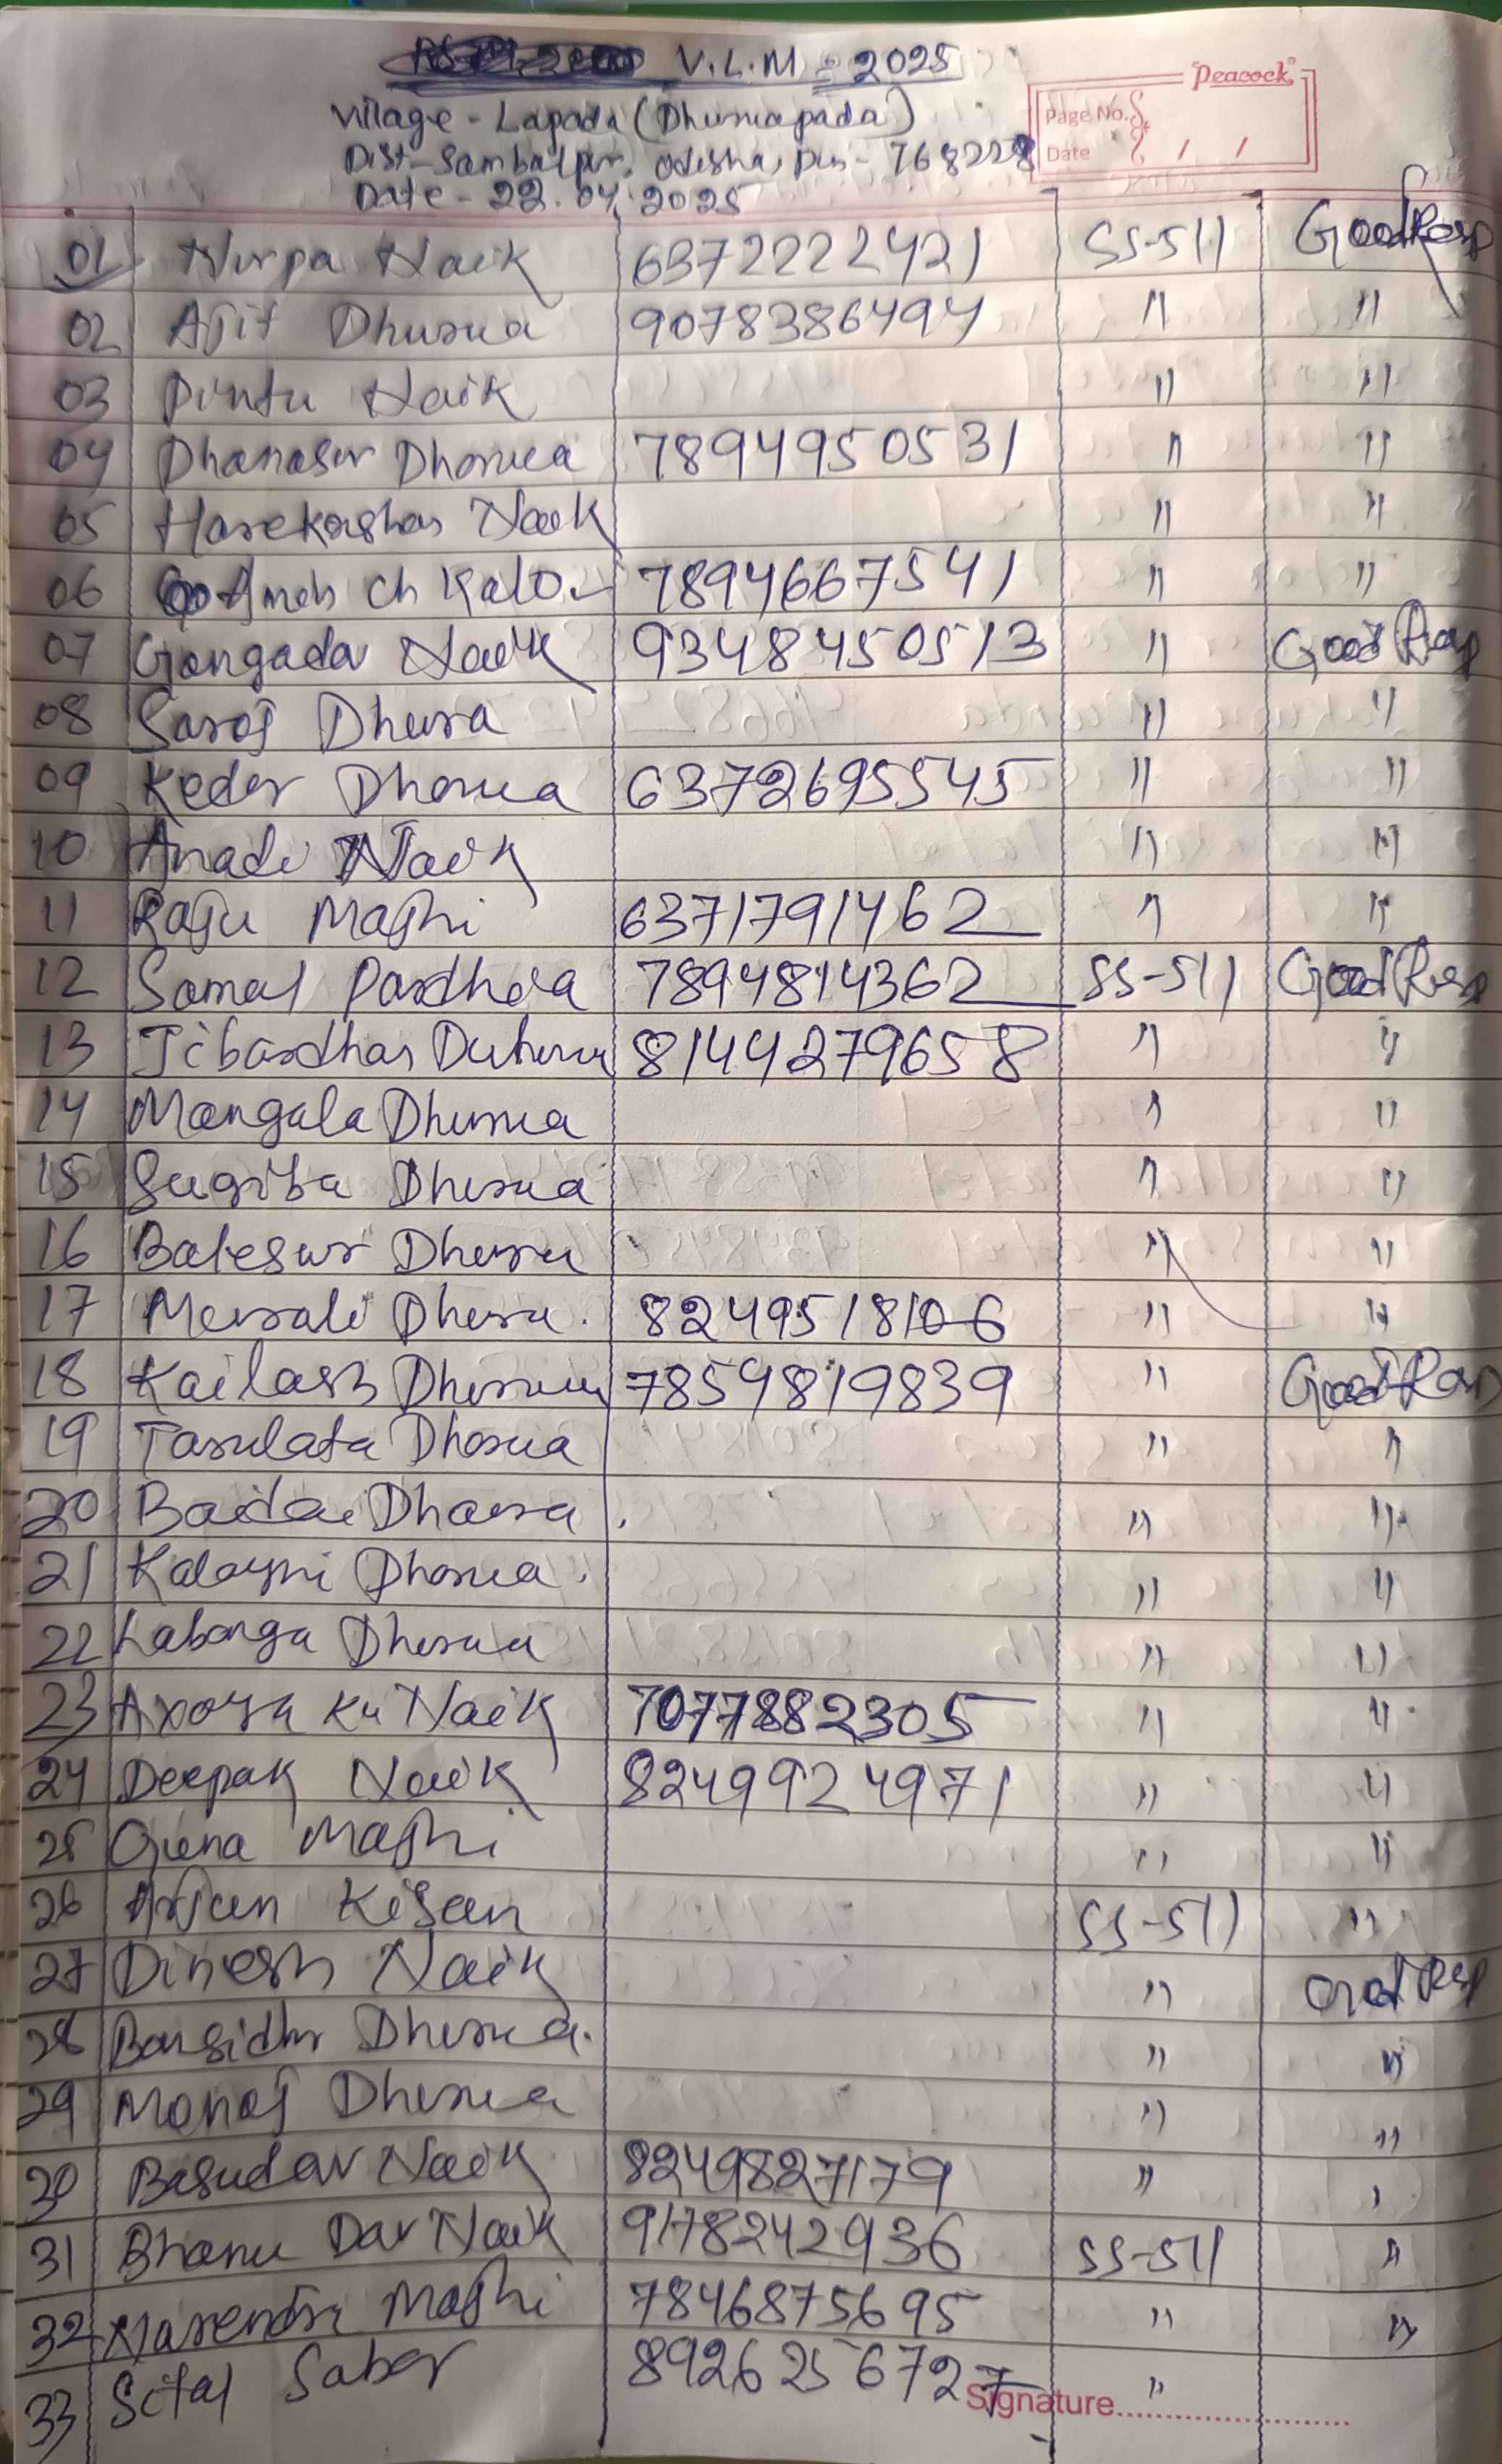 V.L.M - 2025
Village - Lapada (Dhuruapada)
Dist - Sambalpur, Odisha, Pin - 768228
Date - 22.04.2025
Peacock
Page No. 8
Date / /
01 Nirpa Naik 6372222421 SS-511 Good Resp
02 Ajit Dhurua 9078386494 " "
03 Pintu Naik " "
04 Dhanasar Dhorua 7894950531 " "
05 Harekrushar Naik " "
06 Ch Kalo 7894667541 " "
07 Gangadar Naik 9348450513 " Good Resp
08 Saroj Dhura " "
09 Keder Dhorua 6372695545 " "
10 Anadi Naik " "
11 Raju Majhi 6371791462 " "
12 Somal Pardhia 7894814362 SS-511 Good Resp
13 Jibardhar 8144279658 " "
14 Mangala Dhurua " "
15 Sugriba Dhurua " "
16 Balesur Dhuru " "
17 Dhuru. 8249518106 " "
18 Kailash 7859819839 " Good Resp
19 Tarulata Dhorua " "
20 " "
21 Kalayni Dhorua. " "
22 Labanga Dhurua " "
23 Axoya Ku Naik 7077882305 " "
24 Deepak Naik 8249924971 " "
25 Guna Majhi " "
26 Arjun Kisan SS-511 "
27 Dinesh Naik " Good Resp
28 Bansidhr Dhurua. " "
29 Manoj Dhurua " "
30 Basudav Naik 8249827179 " "
31 Bhanu Dav Naik 9178242936 SS-511 "
32 Narendra Majhi 7846875695 " "
33 Sital Saber 8926256727 "
Signature